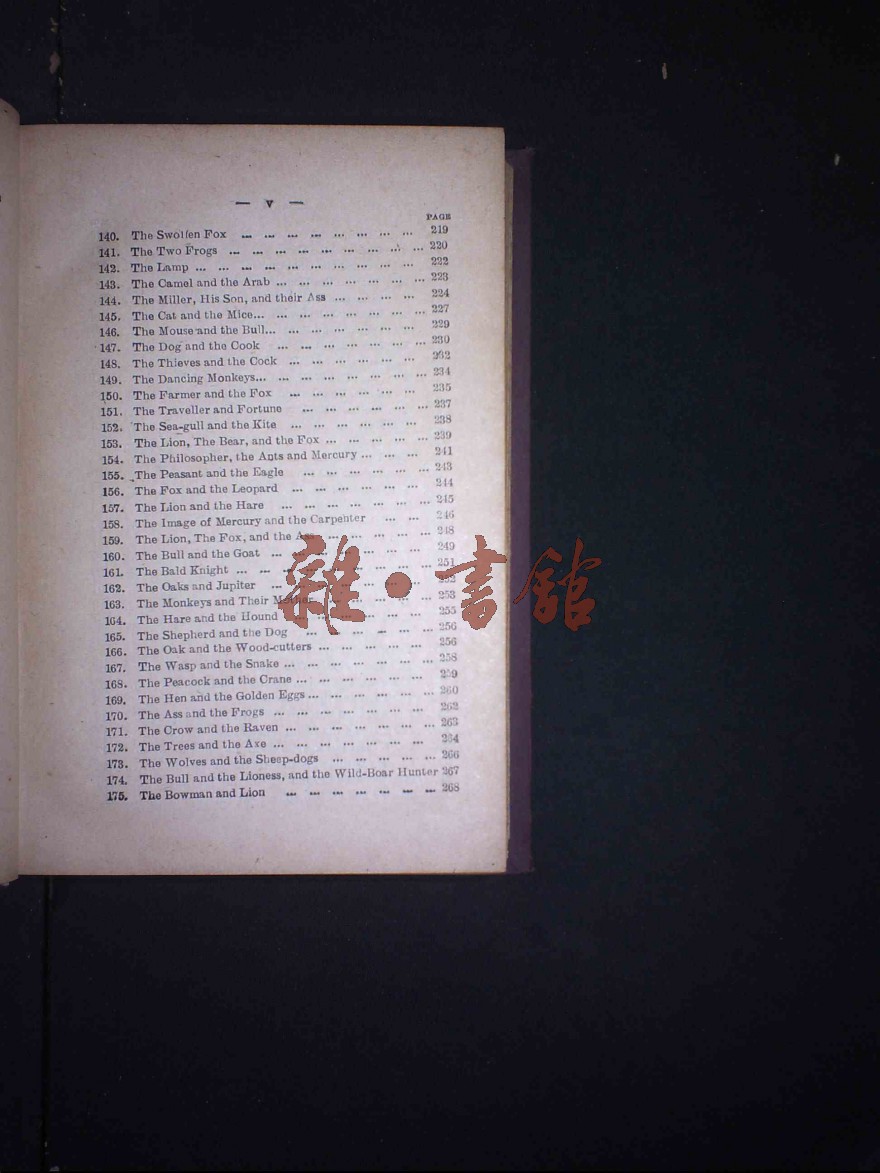 — v —
PAGE
140. The Swollen Fox ... ... ... ... ... ... ... ... 219
141. The Two Frogs ... ... ... ... ... ... ... ... ... 220
142. The Lamp ... ... ... ... ... ... ... ... ... ... 222
143. The Camel and the Arab ... ... ... ... ... ... ... 223
144. The Miller, His Son, and their Ass ... ... ... ... 224
145. The Cat and the Mice... ... ... ... ... ... ... ... 227
146. The Mouse and the Bull... ... ... ... ... ... ... 229
147. The Dog and the Cook ... ... ... ... ... ... ... 230
148. The Thieves and the Cock ... ... ... ... ... ... 232
149. The Dancing Monkeys... ... ... ... ... ... ... ... 234
150. The Farmer and the Fox ... ... ... ... ... ... 235
151. The Traveller and Fortune ... ... ... ... ... ... 237
152. The Sea-gull and the Kite ... ... ... ... ... ... 238
153. The Lion, The Bear, and the Fox ... ... ... ... ... 239
154. The Philosopher, the Ants and Mercury ... ... ... 241
155. The Peasant and the Eagle ... ... ... ... ... ... 243
156. The Fox and the Leopard ... ... ... ... ... ... 244
157. The Lion and the Hare ... ... ... ... ... ... ... 245
158. The Image of Mercury and the Carpenter ... ... 246
159. The Lion, The Fox, and the Ass ... ... ... ... ... 248
160. The Bull and the Goat ... ... ... ... ... ... ... 249
161. The Bald Knight ... ... ... ... ... ... ... ... ... 251
162. The Oaks and Jupiter ... ... ... ... ... ... ... 252
163. The Monkeys and Their Mother ... ... ... ... ... 253
164. The Hare and the Hound ... ... ... ... ... ... 255
165. The Shepherd and the Dog ... ... ... ... ... ... 256
166. The Oak and the Wood-cutters ... ... ... ... ... 256
167. The Wasp and the Snake ... ... ... ... ... ... ... 258
168. The Peacock and the Crane ... ... ... ... ... ... 259
169. The Hen and the Golden Eggs ... ... ... ... ... ... 260
170. The Ass and the Frogs ... ... ... ... ... ... ... 262
171. The Crow and the Raven ... ... ... ... ... ... ... 263
172. The Trees and the Axe ... ... ... ... ... ... ... 264
173. The Wolves and the Sheep-dogs ... ... ... ... ... 266
174. The Bull and the Lioness, and the Wild-Boar Hunter 267
175. The Bowman and Lion ... ... ... ... ... ... ... 268
雜·書館